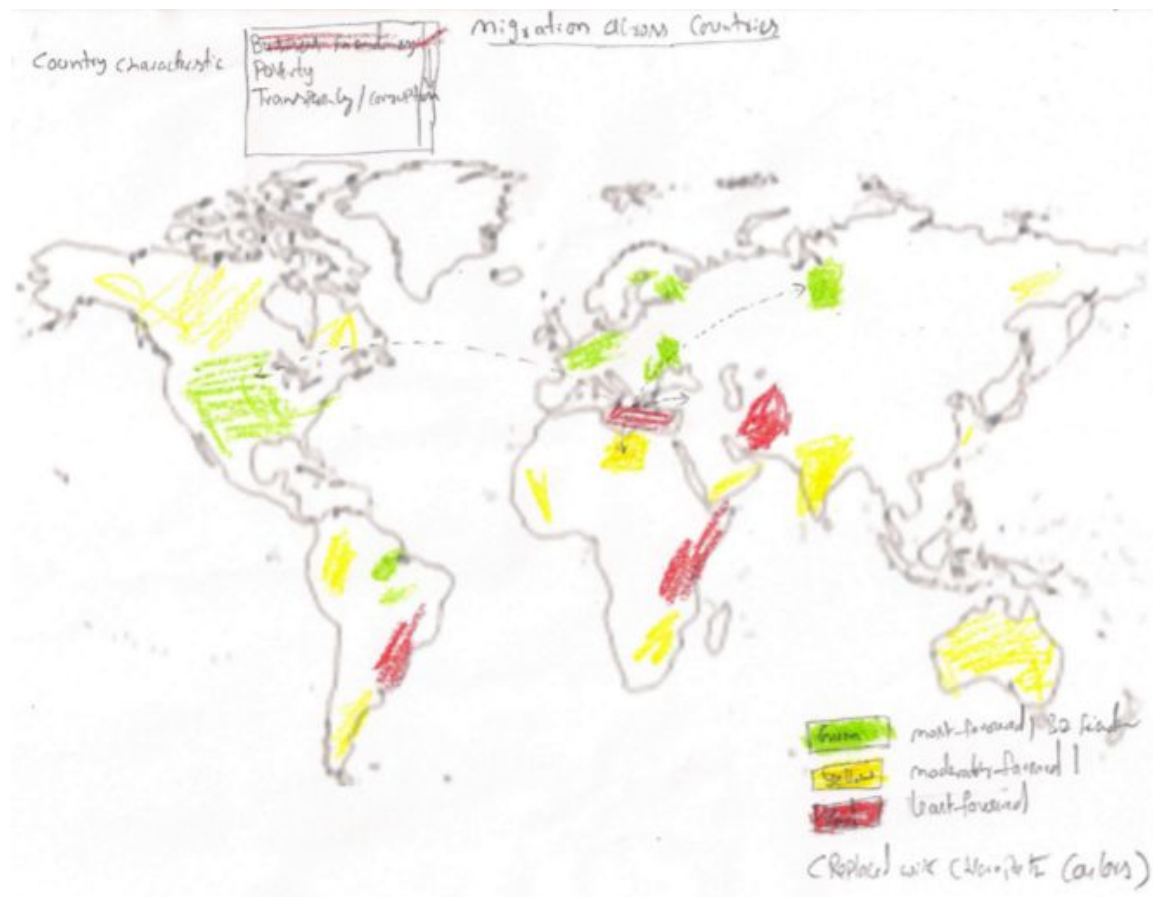 Migration across Countries
Country characteristic
Business friendliness
Poverty
Transparency/corruption
Green most-favored /
Yellow moderately-favored /
Red least-favored
(Replaced with choropleth colors)